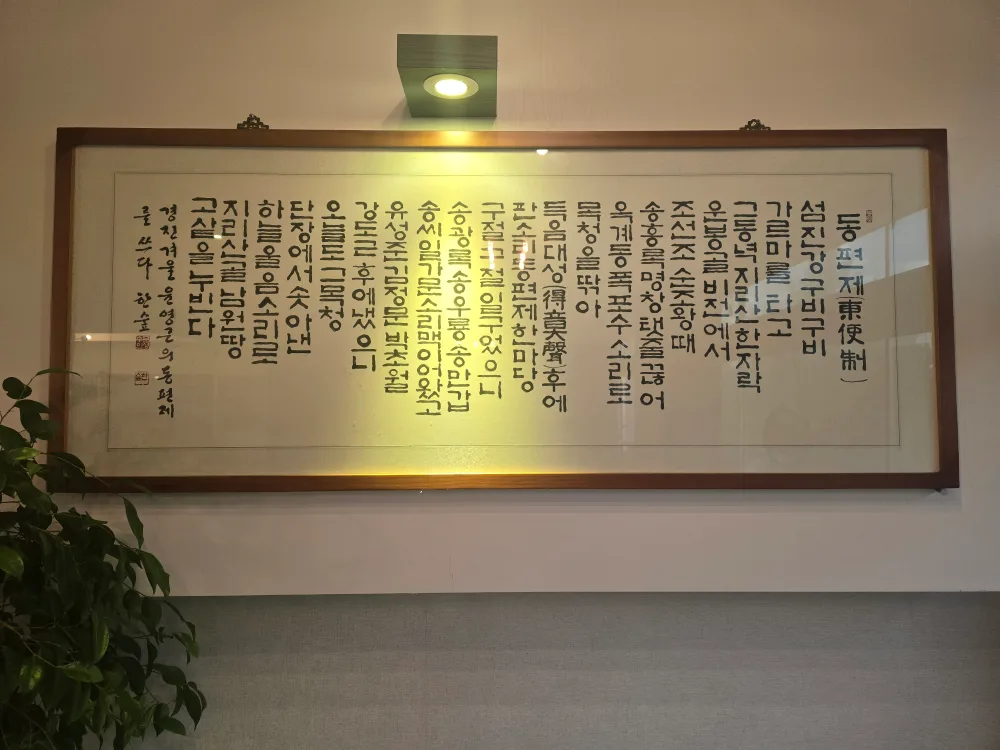 동편제(東便制)
섬진강 구비구비
가을마를 타고
그 동녘 지리산 한자락
운봉골 비전에서
조선조 순조왕때
송흥록 명창 탯줄 끊어
옥계동 폭포수 소리로
목청을 딱아
득음대성(得竟聲)후에
판소리 동편제 한마당
구절구절 일구었으니
송광록 송우룡 송만갑
송씨일가문 소리맥 이어왔고
유성준 김정문 박초월
강도근 후에 냈으니
오늘도 그 목청
단장에서 솟아낸
하늘울음 소리로
지리산골 남원땅
고샅을 누빈다
경진겨울 윤영근의 동편제
를 쓰다 한숲